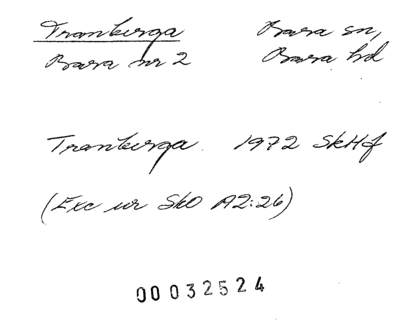 Tranberga Bara sn,
Bara nr 2 Bara hd
Tranberga. 1972 SkHf
(Exc ur SkO A2:26)
00032524